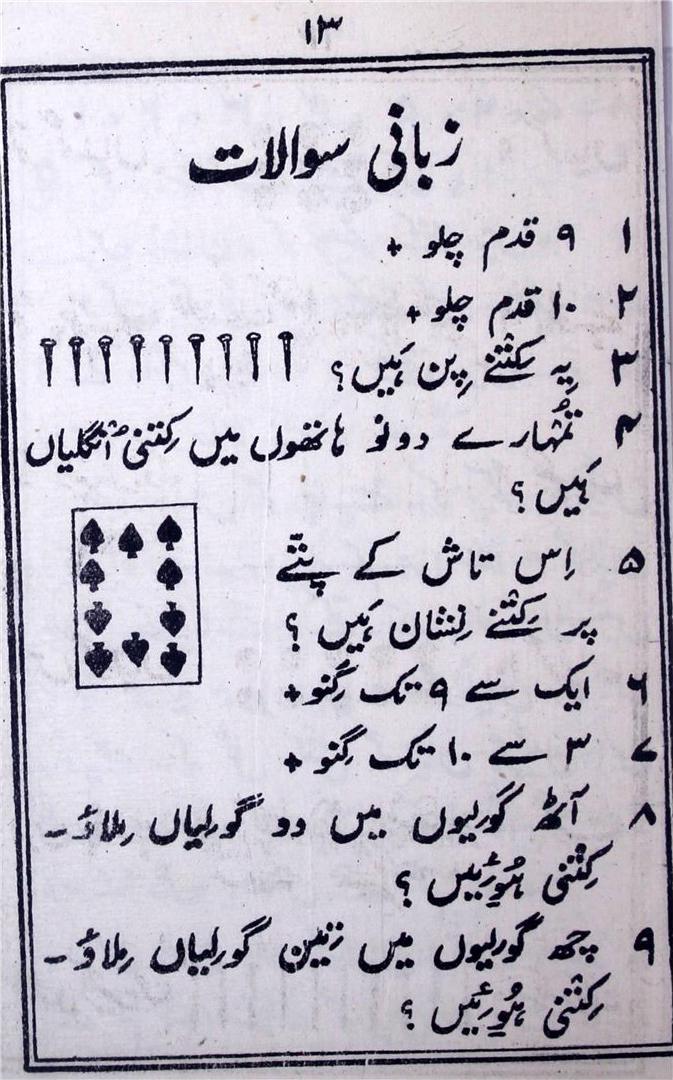 ۱۳
زبانی سوالات
۱ ۹ قدم چلو +
۲ ۱۰ قدم چلو +
۳ یِہ کِتْنے پِن ہَیں؟
۴ تُمْہارے دونو ہاتھوں میں کِتنی اُنْگلیاں
ہَیں؟
۵ اِس تاش کے پتّے
پر کِتْنے نِشان ہَیں؟
۶ ایک سے ۹ تک گِنو +
۷ ۳ سے ۱۰ تک گِنو +
۸ آٹھ گولِیوں میں دو گولِیاں مِلاؤ ۔
کِتْنی ہُوئِیں؟
۹ چھ گولِیوں میں تِین گولِیاں مِلاؤ ۔
کِتْنی ہُوئِیں؟